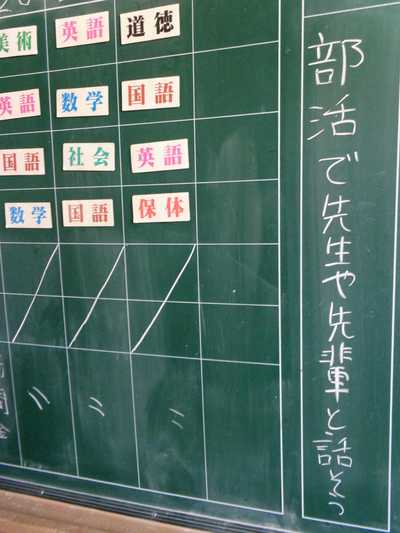 部活で先生や先輩と話そう
美術 英語 道徳
英語 数学 国語
国語 社会 英語
数学 国語 保体